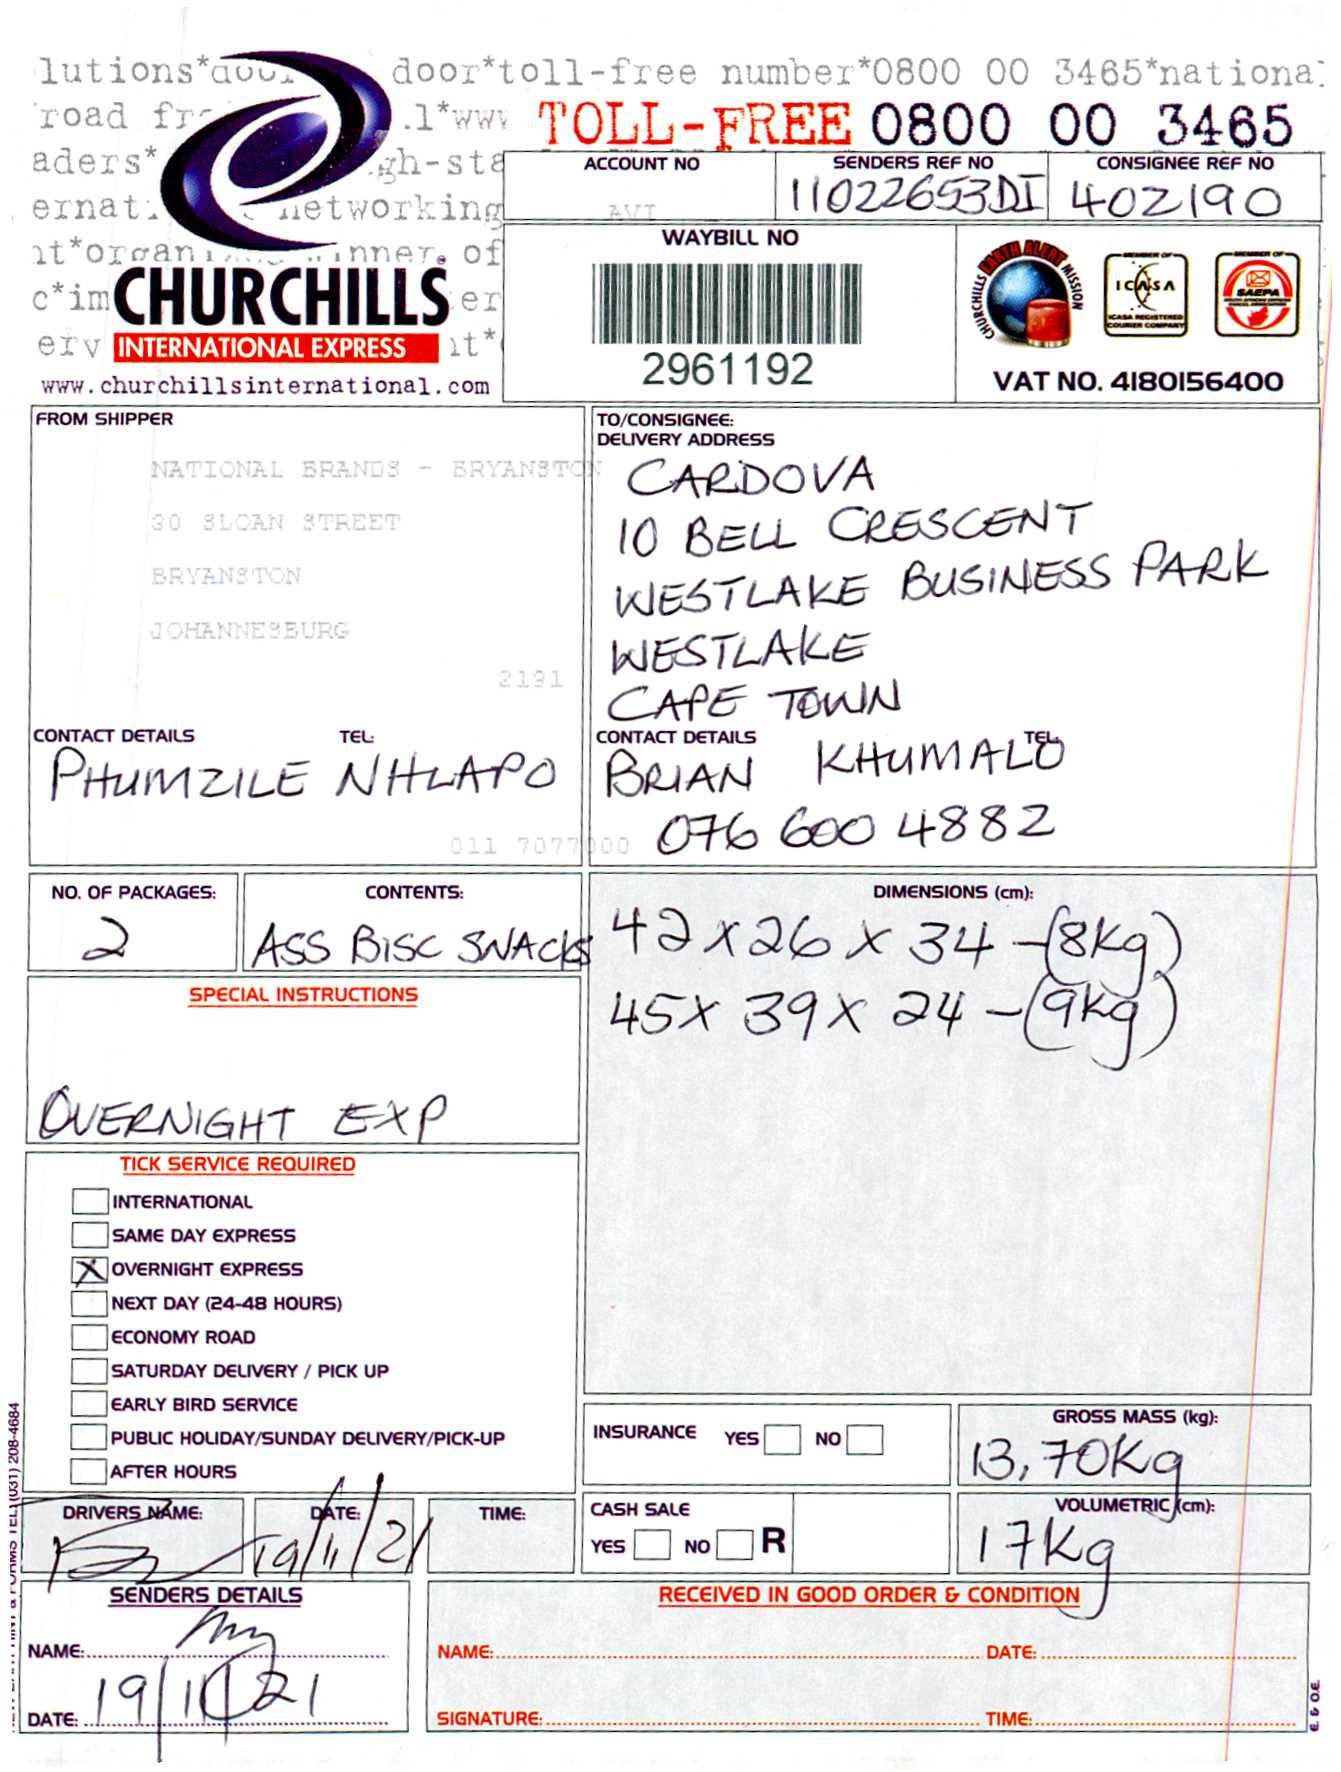 lutions*door door*toll-free number*0800 00 3465*national
road fr .l*www TOLL-FREE 0800 00 3465
aders* gh-sta
ACCOUNT NO
SENDERS REF NO
11022653DI
CONSIGNEE REF NO
402190
ernat networking
AVI
nt*organ inner of
c*im er
erv nt*
CHURCHILLS
INTERNATIONAL EXPRESS
www.churchillsinternational.com
WAYBILL NO
2961192
CHURCHILLS EARTH ALERT MISSION
MEMBER OF
ICASA
ICASA REGISTERED
COURIER COMPANY
MEMBER OF
SAEPA
VAT NO. 4180156400
FROM SHIPPER
NATIONAL BRANDS - BRYANSTON
30 SLOAN STREET
BRYANSTON
JOHANNESBURG
2191
CONTACT DETAILS TEL:
PHUMZILE NHLAPO
011 7077000
TO/CONSIGNEE:
DELIVERY ADDRESS
CARDOVA
10 BELL CRESCENT
WESTLAKE BUSINESS PARK
WESTLAKE
CAPE TOWN
CONTACT DETAILS TEL:
BRIAN KHUMALO
076 600 4882
NO. OF PACKAGES:
2
CONTENTS:
ASS BISC SNACKS
DIMENSIONS (cm):
42 x 26 x 34 - (8Kg)
45 x 39 x 24 - (9kg)
SPECIAL INSTRUCTIONS
OVERNIGHT EXP
TICK SERVICE REQUIRED
INTERNATIONAL
SAME DAY EXPRESS
X OVERNIGHT EXPRESS
NEXT DAY (24-48 HOURS)
ECONOMY ROAD
SATURDAY DELIVERY / PICK UP
EARLY BIRD SERVICE
PUBLIC HOLIDAY/SUNDAY DELIVERY/PICK-UP
AFTER HOURS
INSURANCE YES NO
GROSS MASS (kg):
13,70Kg
DRIVERS NAME:
DATE:
19/11/21
TIME:
CASH SALE
YES NO R
VOLUMETRIC (cm):
17Kg
SENDERS DETAILS
NAME:
DATE: 19/11/21
RECEIVED IN GOOD ORDER & CONDITION
NAME: DATE:
SIGNATURE: TIME:
E. & O.E.
TEL: (031) 208-4684